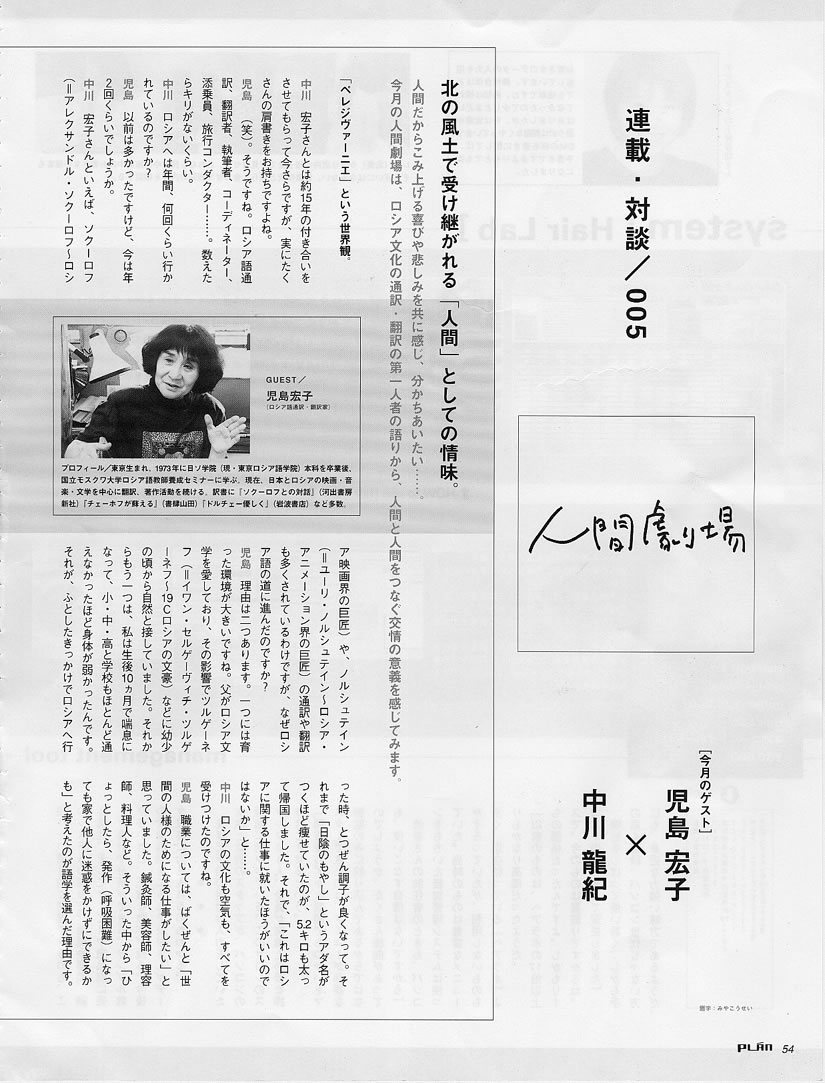 連載・対談／005
人間劇場
［今月のゲスト］
児島 宏子
×
中川 龍紀
題字：みやこうせい
北の風土で受け継がれる「人間」としての情味。
人間だからこみ上げる喜びや悲しみを共に感じ、分かちあいたい……。
今月の人間劇場は、ロシア文化の通訳・翻訳の第一人者の語りから、人間と人間をつなぐ交情の意義を感じてみます。
「ペレジヴァーニエ」という世界観。
中川　宏子さんとは約15年の付き合いを
させてもらって今さらですが、実にたく
さんの肩書きをお持ちですよね。
児島　（笑）。そうですね。ロシア語通
訳、翻訳者、執筆者、コーディネーター、
添乗員、旅行コンダクター……。数えた
らキリがないくらい。
中川　ロシアへは年間、何回くらい行か
れているのですか？
児島　以前は多かったですけど、今は年
2回くらいでしょうか。
中川　宏子さんといえば、ソクーロフ
（＝アレクサンドル・ソクーロフ〜ロシ
GUEST／
児島宏子
（ロシア語通訳・翻訳家）
プロフィール／東京生まれ。1973年に日ソ学院（現・東京ロシア語学院）本科を卒業後、
国立モスクワ大学ロシア語教師養成セミナーに学ぶ。現在、日本とロシアの映画・音
楽・文学を中心に翻訳、著作活動を続ける。訳書に『ソクーロフとの対話』（河出書房
新社）『チェーホフが蘇える』（書肆山田）『ドルチェー優しく』（岩波書店）など多数。
ア映画界の巨匠）や、ノルシュテイン
（＝ユーリ・ノルシュテイン〜ロシア・
アニメーション界の巨匠）の通訳や翻訳
も多くされているわけですが、なぜロシ
ア語の道に進んだのですか？
児島　理由は二つあります。一つには育
った環境が大きいですね。父がロシア文
学を愛しており、その影響でツルゲーネ
フ（＝イワン・セルゲーヴィチ・ツルゲ
ーネフ〜19Cロシアの文豪）などに幼少
の頃から自然と接していました。それか
らもう一つは、私は生後10ヵ月で喘息に
なって、小・中・高と学校もほとんど通
えなかったほど身体が弱かったんです。
それが、ふとしたきっかけでロシアへ行
った時、とつぜん調子が良くなって。そ
れまで「日陰のもやし」というアダ名が
つくほど痩せていたのが、5.2キロも太っ
て帰国しました。それで、「これはロシ
アに関する仕事に就いたほうがいいので
はないか」と……。
中川　ロシアの文化も空気も、すべてを
受けつけたのですね。
児島　職業については、ばくぜんと「世
間の人様のためになる仕事がしたい」と
思っていました。鍼灸師、美容師、理容
師、料理人など。そういった中から「ひ
ょっとしたら、発作（呼吸困難）になっ
ても家で他人に迷惑をかけずにできるか
も」と考えたのが語学を選んだ理由です。
PLAN 54